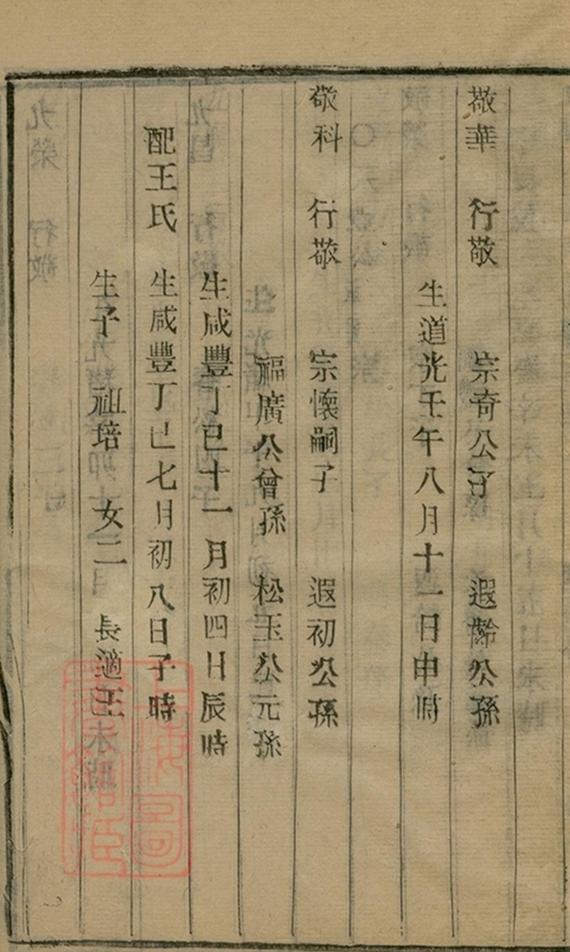 敬華 行敬 宗奇公子 遐齡公孫
生道光壬午八月十一日申時
敬科 行敬 宗懷嗣子 遐初公孫
福廣公曾孫 松玉公元孫
生咸豐丁巳十一月初四日辰時
配王氏 生咸豐丁巳七月初八日子時
生子 祖培 女二 長適王